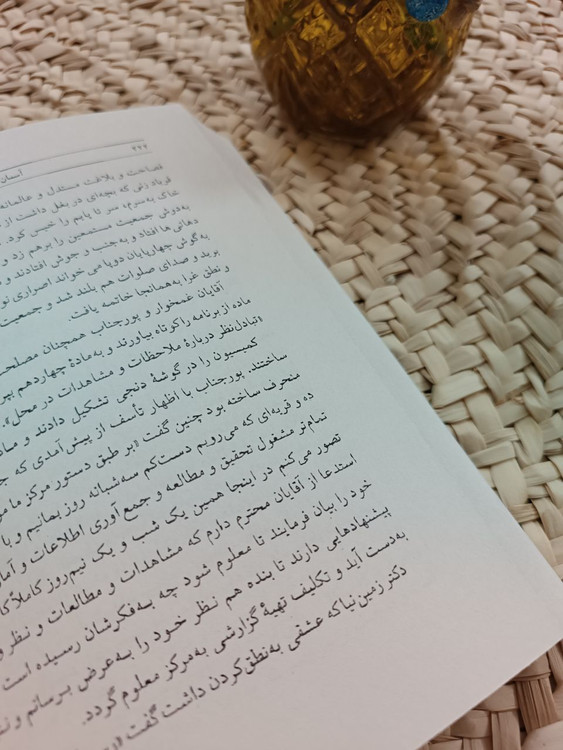 ۲۲۷
آسمان
فصاحت و بلاغت مستدل و عالمانه
فریاد زنی که بچه‌ای در بغل داشت از
خاک به‌سرم، سر تا پایم را خیس کرد.
به‌دوش جمعیت مستمعین را برهم زد و
دهاتی‌ها افتاد و به جنب و جوش افتادند و
به‌گوش چهارپایان دوپا می‌خواند اصراری
برید و صدای صلوات هم بلند شد و جمعیت
و نطق غرا به‌همانجا خاتمه یافت.
آقایان غمخوار و پورجناب همچنان مصلحت
ماده از برنامه را کوتاه بیاورند و به مادهٔ چهاردهم
«تبادل‌نظر دربارهٔ ملاحظات و مشاهدات در محل».
کمیسیون را در گوشهٔ دنجی تشکیل دادند و
ساختند. پورجناب با اظهار تأسف از پیش‌آمدی که
منحرف ساخته بود چنین گفت «بر طبق دستور مرکز ما
ده و قریه‌ای که می‌رویم دست‌کم سه شبانه روز بمانیم و با
تمام‌تر مشغول تحقیق و مطالعه و جمع‌آوری اطلاعات و
تصور می‌کنم در اینجا همین یک شب و یک نیم‌روز کاملاً
استدعا از آقایان محترم دارم که مشاهدات و مطالعات و
خود را بیان فرمایند تا معلوم شود چه به‌فکرشان رسیده است
پیشنهادهایی دارند تا بنده هم نظر خود را به‌عرض برسانم و
به‌دست آید و تکلیف تهیهٔ گزارشی به‌مرکز معلوم گردد.
دکتر زمین‌نیا که عشقی به‌نطق‌کردن داشت گفت